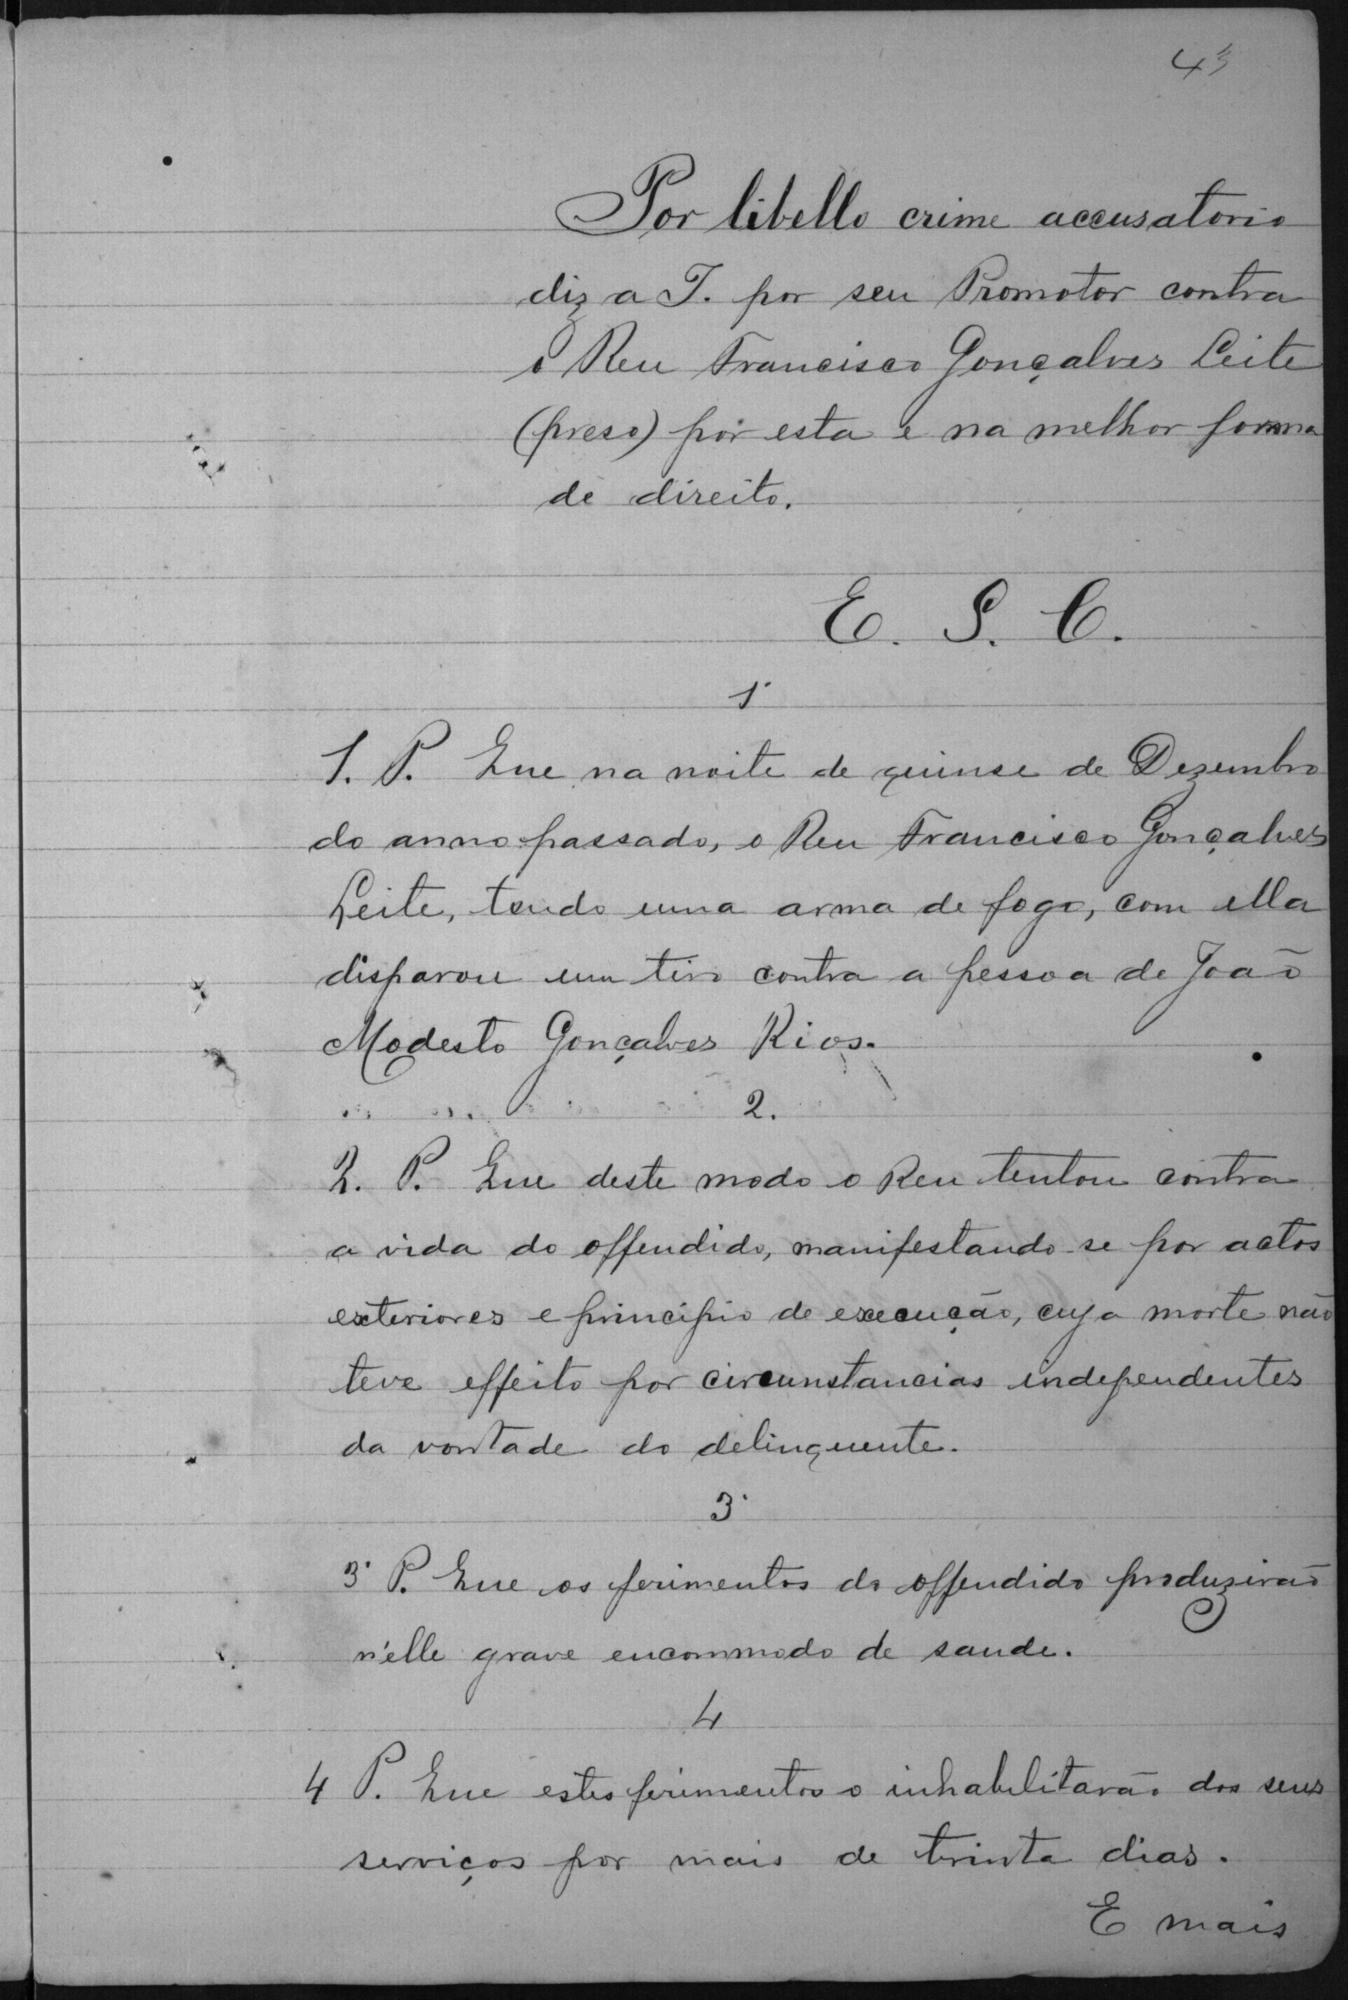 43
Por libello crime accusatorio
diz a J. por seu Promotor contra
o Reu Francisco Gonçalves Leite
(preso) por esta e na melhor forma
de direito.
E. S. C.
1º
1. P. Que na noite de quinse de Dezembro
do anno passado, o Reu Francisco Gonçalves
Leite, tendo uma arma de fogo, com ella
disparou um tiro contra a pessoa de João
Modesto Gonçalves Rios.
2.
2. P. Que deste modo o Reu tentou contra
a vida do offendido, manifestando-se por actos
exteriores e principio de execução, cuja morte não
teve effeito por circunstancias independentes
da vontade do delinquente.
3º
3º P. Que os ferimentos do offendido produzirão
n'elle grave encommodo de saude.
4
4 P. Que estes ferimentos o inhabilitarão dos seus
serviços por mais de trinta dias.
E mais